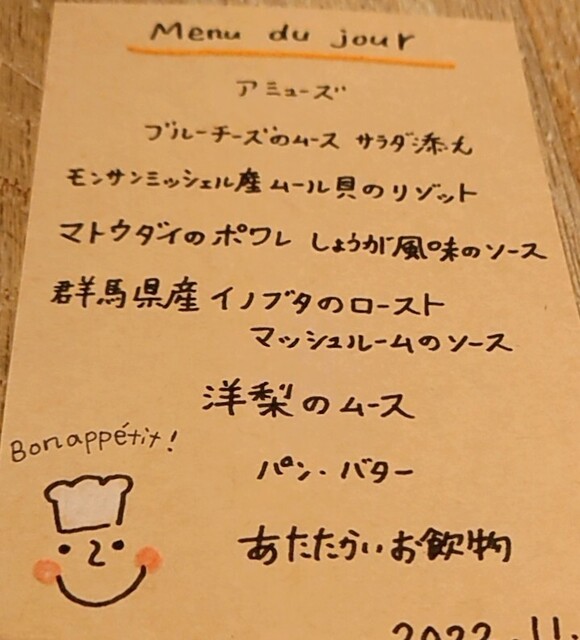 Menu du jour
アミューズ
ブルーチーズのムース サラダ添え
モンサンミッシェル産ムール貝のリゾット
マトウダイのポワレ しょうが風味のソース
群馬県産イノブタのロースト
マッシュルームのソース
洋梨のムース
Bon appétit!
パン・バター
あたたかいお飲物